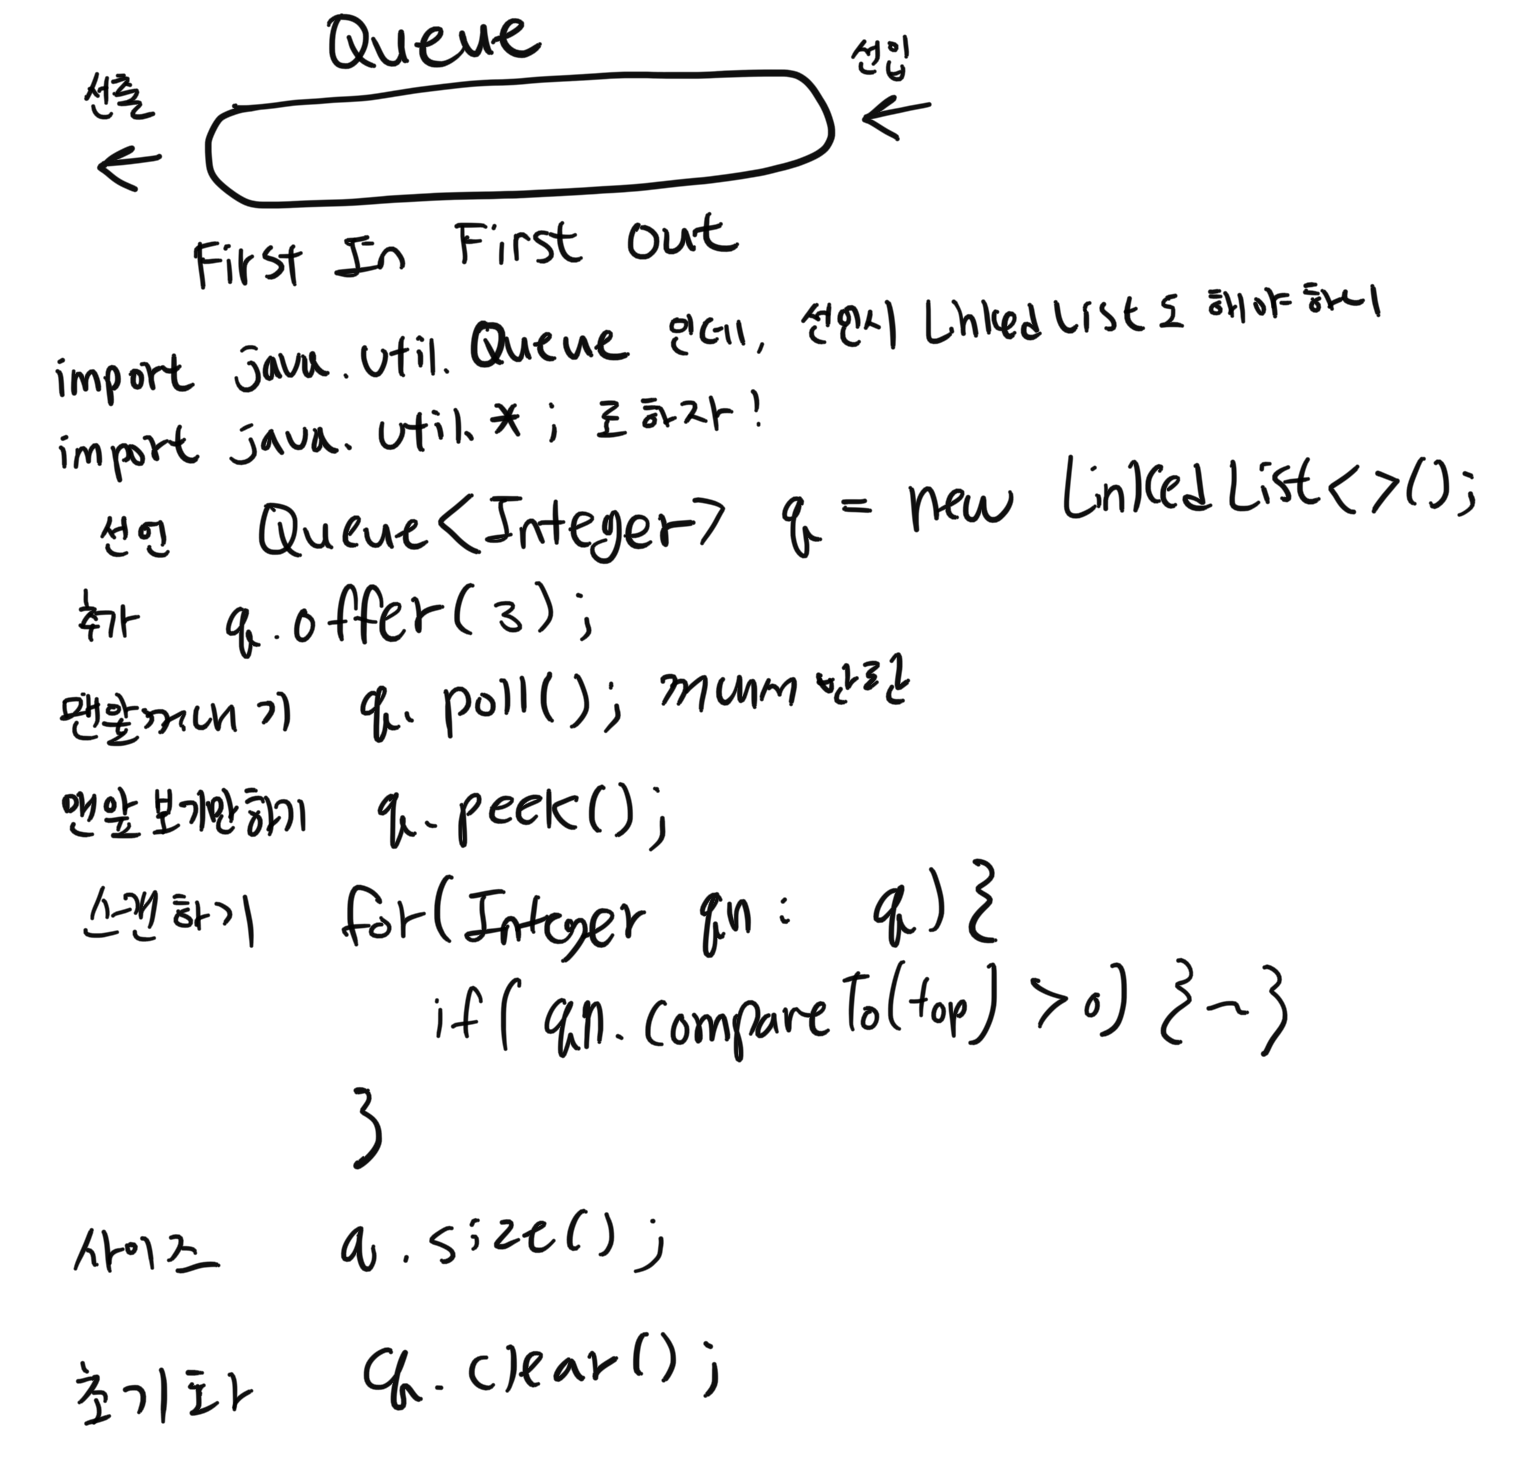 Queue
선출
선입
First In First Out
import java.util.Queue 인데, 선언시 LinkedList도 해야하니
import java.util.*; 로하자!
선언 Queue<Integer> q = new LinkedList<>();
추가 q.offer(3);
맨앞꺼내기 q.poll(); 꺼내서 반환
맨앞 보기만하기 q.peek();
스캔하기 for(Integer qn : q){
if(qn.compareTo(top) > 0) {~}
}
사이즈 q.size();
초기화 q.clear();